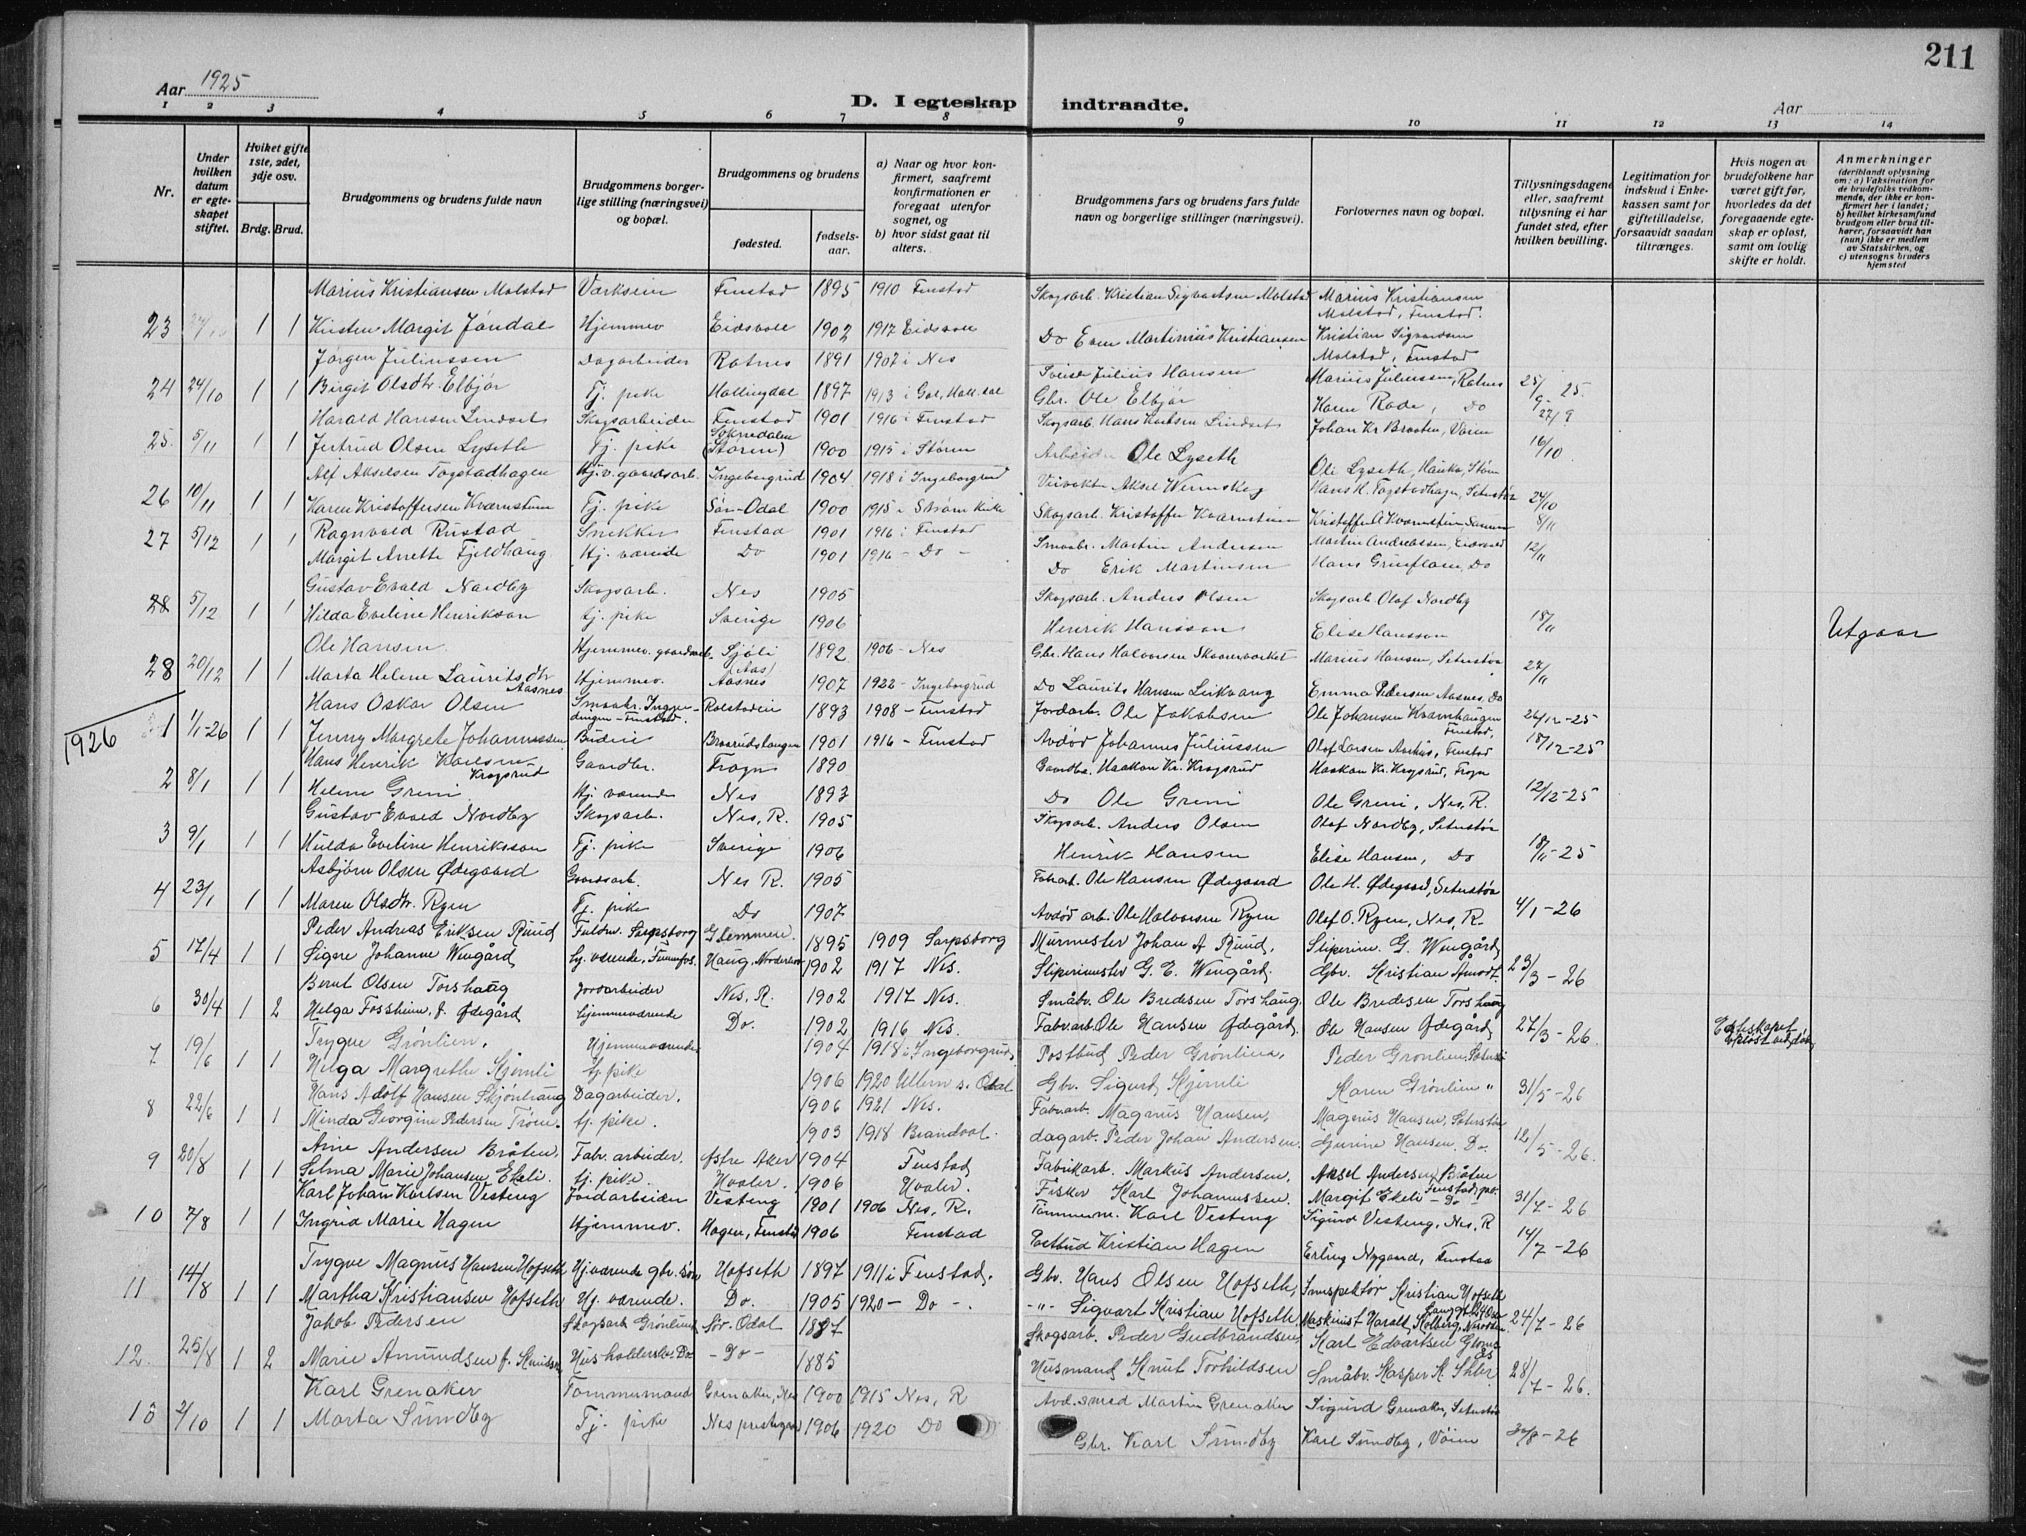 211
Aar 1925
D. I egteskap indtraadte.
Aar
1 2 3 4 5 6 7 8 9 10 11 12 13 14
Nr.
Under hvilken datum er egteskapet stiftet.
Hvilket gifte 1ste, 2det, 3dje osv.
Brdg. Brud.
Brudgommens og brudens fulde navn
Brudgommens borgerlige stilling (næringsvei) og bopæl.
Brudgommens og brudens
fødested. fødselsaar.
a) Naar og hvor konfirmert, saafremt konfirmationen er foregaat utenfor sognet, og
b) hvor sidst gaat til alters.
Brudgommens fars og brudens fars fulde navn og borgerlige stillinger (næringsvei).
Forlovernes navn og bopæl.
Tillysningsdagene eller, saafremt tillysning ei har fundet sted, efter hvilken bevilling.
Legitimation for indskud i Enkekassen samt for giftetilladelse, forsaavidt saadan tiltrænges.
Hvis nogen av brudefolkene har været gift før, hvorledes da det foregaaende egteskap er opløst, samt om lovlig skifte er holdt.
Anmerkninger (deriblandt oplysning om: a) Vaksination for de brudefolks vedkommende, der ikke er konfirmert her i landet; b) hvilket kirkesamfund brudgom eller brud tilhører, forsaavidt han (nun) ikke er medlem av Statskirken, og c) utensogns bruders hjemsted
Marius Kristiansen Molstad Værkseier Fenstad 1895 1910 Fenstad Skogsarb. Kristian Sigvartsen Molstad Marius Kristiansen Molstad, Fenstad.
23 1 1 Kirsten Margit Jøndal Hjemmev Eidsvoll 1902 1917 Eidsvoll Do Even Martinius Kristiansen Kristian Sigvardsen Molstad, Fenstad
Jørgen Juliussen Dagarbeider Rotnes 1891 1907 i Nes Sveiser Julius Hansen Marius Juliussen, Rotnes
24 24/10 1 1 Birgit Olsdtr. Elbjør Tj. pike Hallingdal 1897 1913 i Gol, Hall.dal Gbr. Ole Elbjør Karen Rode, Do 25/9 - 25. 27/9
Harald Hansen Lindset Skogsarbeider Fenstad 1901 1916 i Fenstad Skogsarb. Hans Karlsen Lindset Johan Kr. Braaten, Vormen
25. 5/11 1 1 Jertrud Olsen Lyseth Tj. pike Soknedalen (Støren) 1900 1915 i Støren Arbeider Ole Lyseth Ole Lyseth, Hauka, Støren 16/10
Alf Akselsen Togstadhagen Hj.v. gaardsarb. Ingeborgrud 1904 1918 i Ingeborgrud Veivokter Aksel Wennskog Hans H. Togstadhagen, Seterstøa
26 10/11 1 1 Karen Kristoffersen Kvernstuen Tj. pike Sør-Odal 1900 1915 i Strøm kirke Skogsarb. Kristoffer Kvernstuen Kristoffer A Kvernstuen, 24/10
27 5/12 1 1 Ragnvald Rustad Snekker Fenstad 1901 1916 i Fenstad Smaabr. Martin Andersen Martin Andreassen, 8/11
Margit Anette Fjeldhaug Hj. værende Do 1901 1916 - Do - Do Erik Martinsen Hans Do 12/11
Gustav Evald Nordby Skogsarb. Nes 1905 Skogsarb. Anders Olsen Skogsarb Olaf Nordby
28 5/12 1 1 Hilda Eveline Henrikson tj. pike Sverige 1906 Henrik Hansson Elise Hansson 18/11 Utgaar
Ole Hansen Hjemmev. gaardsarb. Sjøli (Aas) 1892 1906 - Nes Gbr. Hans Halvorsen Skaarerverket Marius Hansen, Seterstøa
28 20/12 1 1 Marta Helene Lauritsdtr Aasnes Hjemmev. Aasnes 1907 1922 - Ingeborgrud Do Laurits Hansen Leikvang Emma Pedersen Aasnes, Do 27/11
Hans Oskar Olsen Smaabr. Fenstad. Rolstadeie 1893 1908 - Fenstad Jordarb. Ole Jakobsen Ole Johansen Kvernhaugen Fenstad, 26/12 - 25
1926 1 1/1-26 1 1 Jenny Margrete Johannessen Budeie Brosrudshaugen 1901 1916 - Fenstad Avdød Johannes Juliussen Olaf Larsen Aarhus, Fenstad 18/12-25
Hans Henrik Karlsen Krogsrud Gaardbr. Frogn 1890 Gaardbr. Haakon Kr. Krogsrud Haakon Kr. Krogsrud, Frogn
2 8/1 1 1 Helene Greni Hj. værende Nes 1893 Do Ole Greni Ole Greni, Nes, R. 12/12-25
Gustav Evald Nordby Skogsarb. Nes, R. 1905 Skogsarb. Anders Olsen Olaf Nordby, Seterstøa
3 9/1 1 1 Hulda Eveline Henriksson Tj. pike Sverige 1906 Henrik Hansen Elise Hansen, Do 18/11 - 25
Asbjørn Olsen Ødegaard Gaardsarb. Nes R. 1905 Fabarb. Ole Hansen Ødegaard Ole H. Ødegaard, Seterstøa
4 23/1 1 1 Maren Olsdtr. Ryen Tj. pike Do 1907 Avdød arb. Ole Halvorsen Ryen Olaf O. Ryen, Nes, R. 4/1 - 26
Peder Andreas Eriksen Ruud Fuldm. Sarpsborg Glemmen. 1895 1909 Sarpsborg Murmester Johan A Ruud, Sliperim. G. Wengård
5 17/4 1 1 Sigre Johanne Wengård hj. værende, Funnefos. Haug, Norderhov 1902 1917 Nes. Sliperimester G. E. Wengård. Gbr. Kristian Åmodt. 23/3 - 26
Bernt Olsen Torshaug Jordarbeider Nes, R. 1902 1917 Nes. Småbr. Ole Bredesen Torshaug, Ole Bredesen Torshaug
6 30/4 1 2 Helga Fossheim, f. Ødegård hjemmeværende Do. 1902 1916 Nes. Fabr.arb Ole Hansen Ødegård, Ole Hansen Ødegård, 27/3 - 26. Egteskapet opløst ved død.
Trygve Grønlien. Hjemmeværende 1904 1918 i Ingeborgrud, Postbud Peder Grønlien, Peder Grønlien, Seterstøa
7 19/6 1 1 Helga Margrethe Hjemli tj. pike 1906 1920 Ullern S. Odal Gbr. Sigurd Hjemli Karen Grønlien " 31/5 - 26
Hans Adolf Hansen Skjønhaug Dagarbeider. 1906 1921 Nes. Fabr.arb. Magnus Hansen, Magnus Hansen, Seterstøa
8 22/6 1 1 Minda Georgine Pedersen Trøen. tj. pike. 1903 1918 Brandval. dagarb. Peder Johan Andersen. Gurine Hansen. Do. 12/5 - 26.
Arne Andersen Bråten, Fab. arbeider. Østre Aker 1904 Fenstad Fabrikarb. Markus Andersen, Aksel Andersen Bråten Fenstad,
9 20/8 1 1 Selma Marie Johansen Ekeli. tj. pike. Hvaler. 1906 Hvaler. Fisker Karl Johannessen. Margit Ekeli - Do - 31/7 - 26
Karl Johan Karlsen Vesteng Jordarbeider Vesteng 1901 1906 Nes, R. Tømmerm. Karl Vesteng Sigurd Vesteng, Nes, R
10 7/8 1 1 Ingrid Marie Hagen Hjemmev. Hagen, Fenstad 1906 Fenstad Postbud Kristian Hagen Erling Nygaard, Fenstad 14/7 - 26
Trygve Magnus Hansen Hofseth Hj.værende gbr. søn Hofseth 1897 1911 i Fenstad. Gbr. Hans Olsen Hofseth, Inspektør Kristian Hofseth
11 14/8 1 1 Martha Kristiansen Hofseth Hj. værende. Do. 1905 1920 - Do -. -"- Sigvart Kristian Hofseth, Maskinist Harald Kolberg, 24/7 - 26
Jakob Pedersen Skogsarb Grønlund Sør-Odal 1887 Skogsarb. Peder Gudbrandsen, Karl Edvartsen
12. 25/8 1 2 Marie Amundsen f. Knutsen Husholderske, Do - Do - 1885 Husmand Knut Torkildsen Småbr. Kasper K. 28/7 - 26.
Karl Grenaker Tømmermand Grenaker, Nes 1900 1915 Nes, R Avd. smed Martin Grenaker Sigurd Grenaker, Seterstøa
13 2/10 1 1 Marta Sundby Tj. pike Nes prestegjeld 1906 1920 Do Gbr. Karl Sundby Karl Sundby, Vormen 30/8 - 26